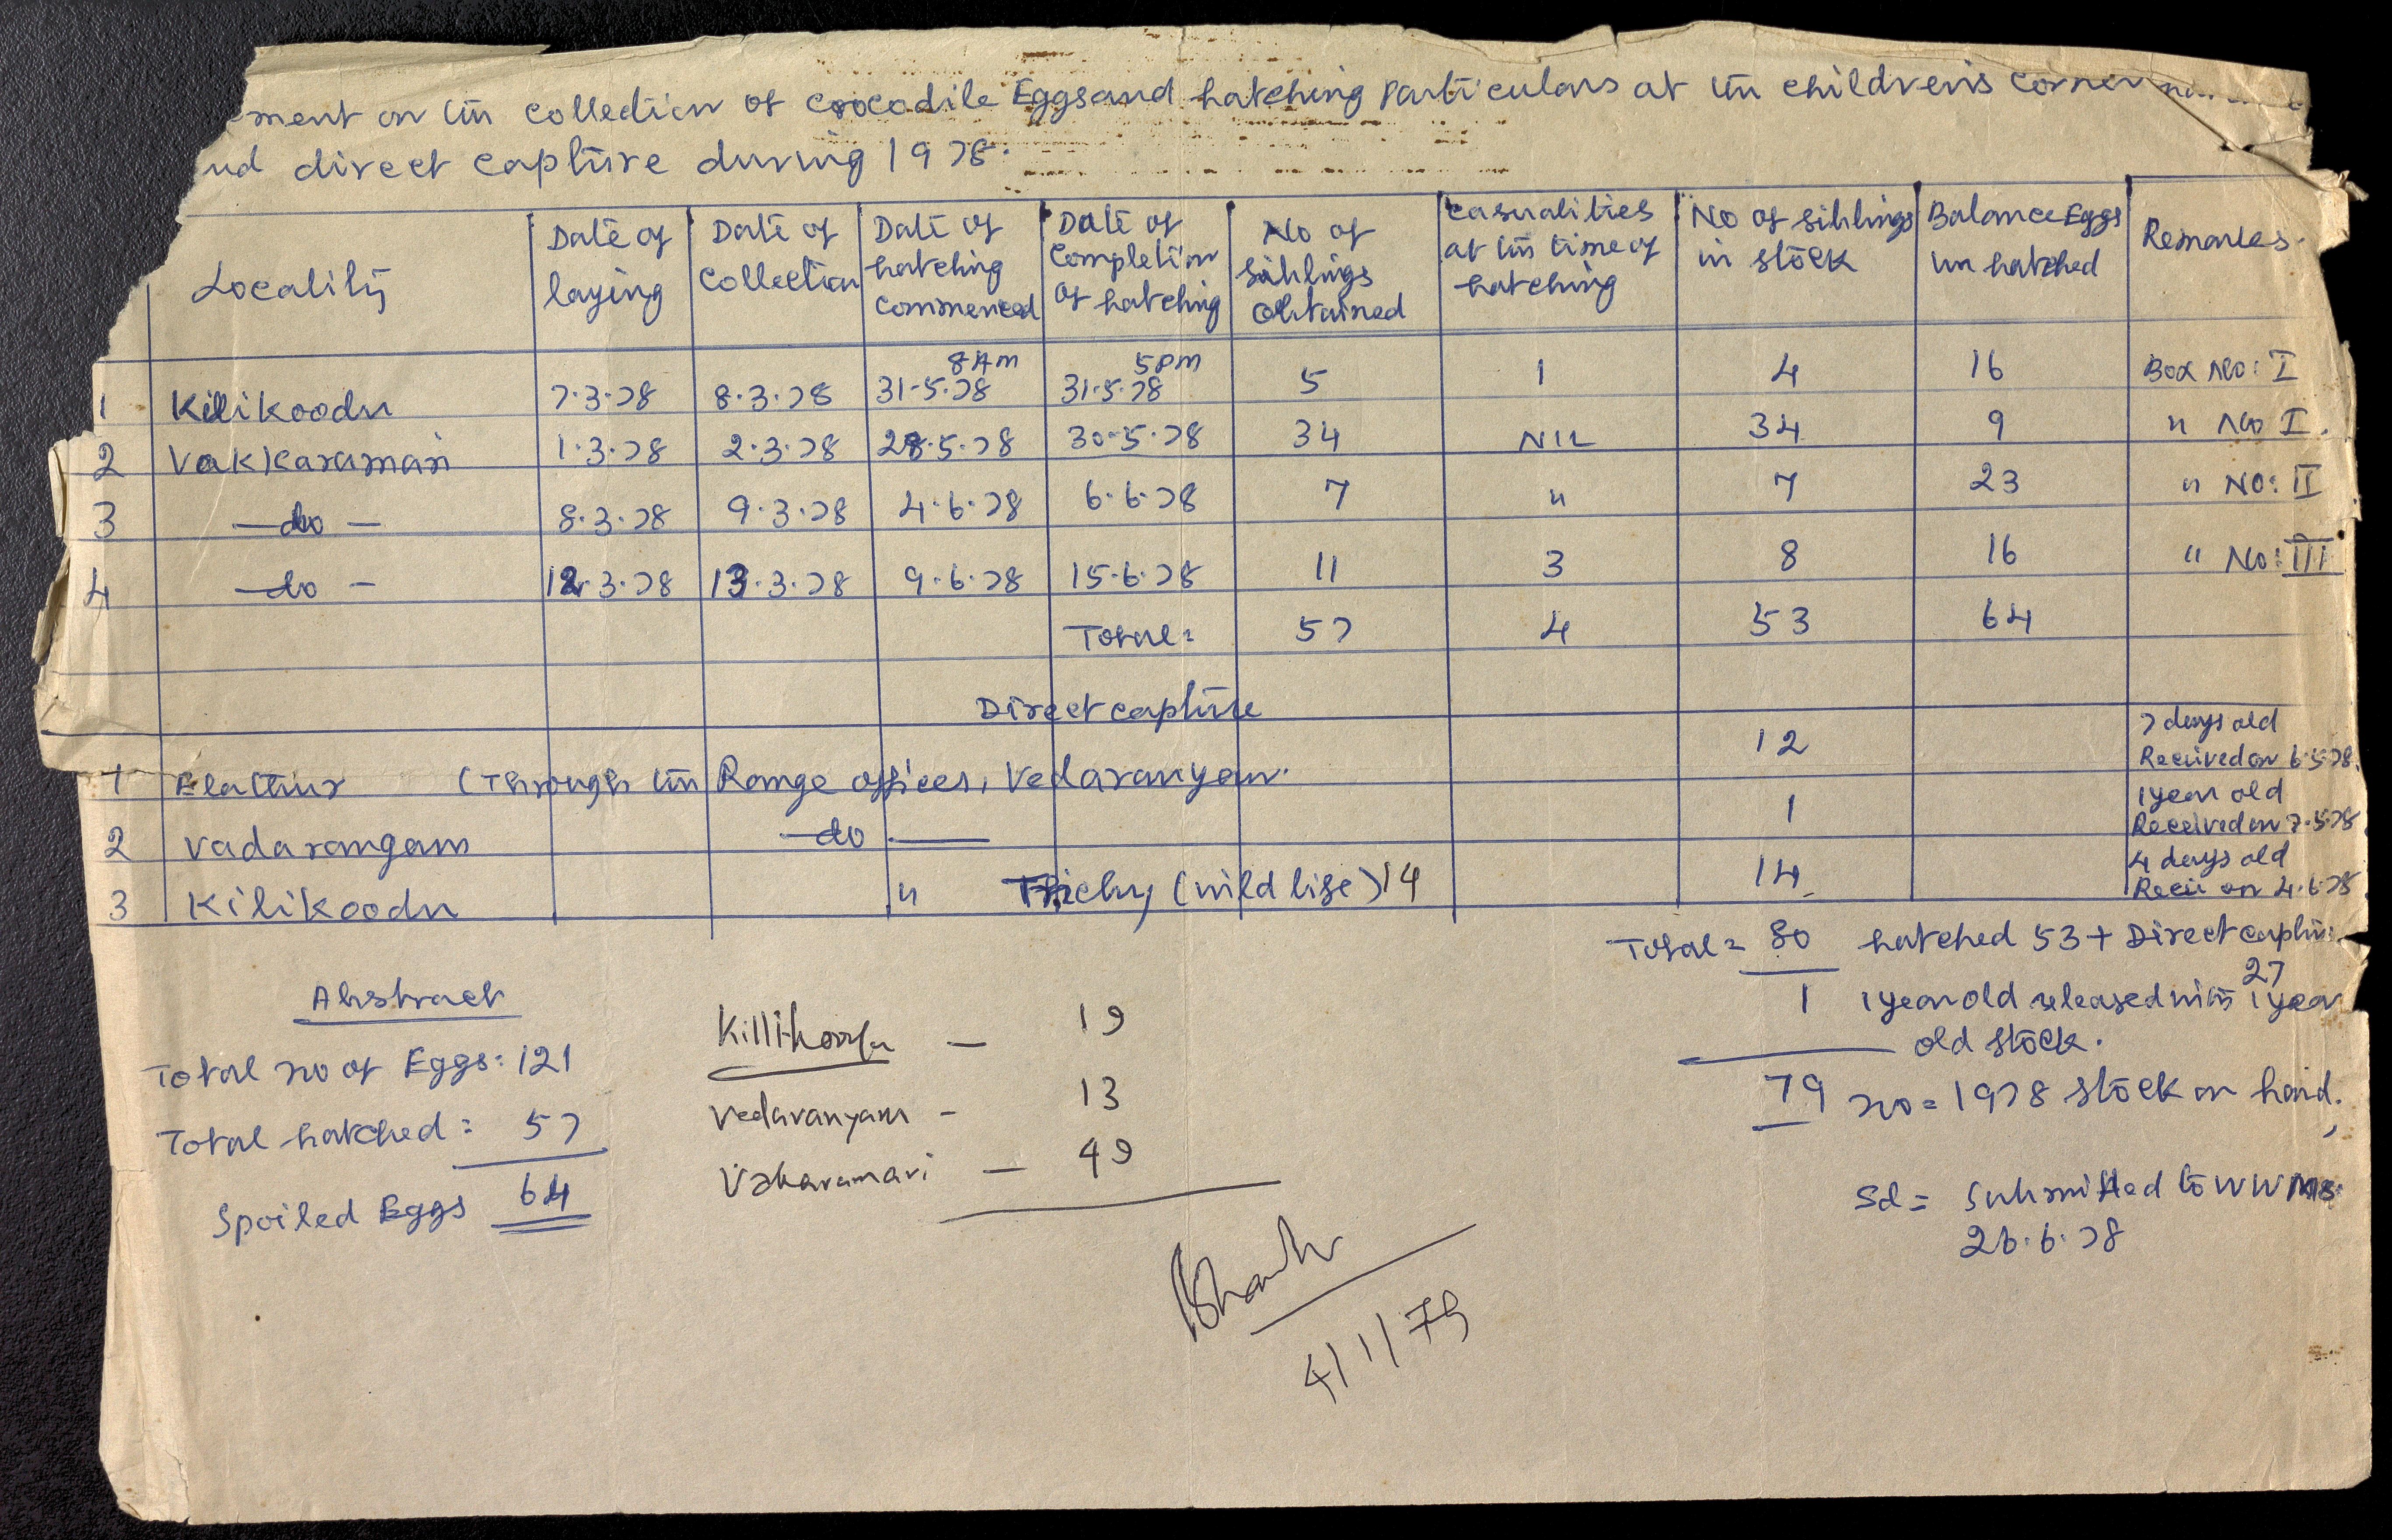 ement on the collection of crocodile Eggs and hatching particulars at the children's corner
nd direct capture during 1978.
Locality | Date of laying | Date of Collection | Date of hatching commenced | Date of Completion of hatching | No of siblings obtained | Casualities at the time of hatching | No of siblings in stock | Balance Eggs un hatched | Remarks.
1 Kilikoodu 7.3.78 8.3.78 8 Am 31-5.78 5 pm 31.5.78 5 1 4 16 Box No: I
2 Vakkaramari 1.3.78 2.3.78 28.5.78 30.5.78 34 NIL 34 9 " No I.
3 -do- 8.3.78 9.3.78 4.6.78 6.6.78 7 " 7 23 " NO: II
4 -do- 12.3.78 13.3.78 9.6.78 15.6.78 11 3 8 16 " No: III
Total = 57 4 53 64
Direct capture
1 Elathur (Through the Range officer, Vedaranyam. 12 7 days old Received on 6.5.78.
2 Vadarangam -do- 1 1 year old Received on 7.5.78
3 Kilikoodu " Trichy (wild life) 14 14 4 days old Recei on 4.6.78
Total = 80 hatched 53 + Direct captu
27
1 1 year old released with 1 year
old stock.
79 no = 1978 stock on hand.
Sd = Submitted to WWMs
26.6.78
Abstract
Total no of Eggs: 121
Total hatched = 57
Spoiled Eggs 64
Killikoodu - 19
Vedaranyam - 13
Vakaramari - 49
4/1/79